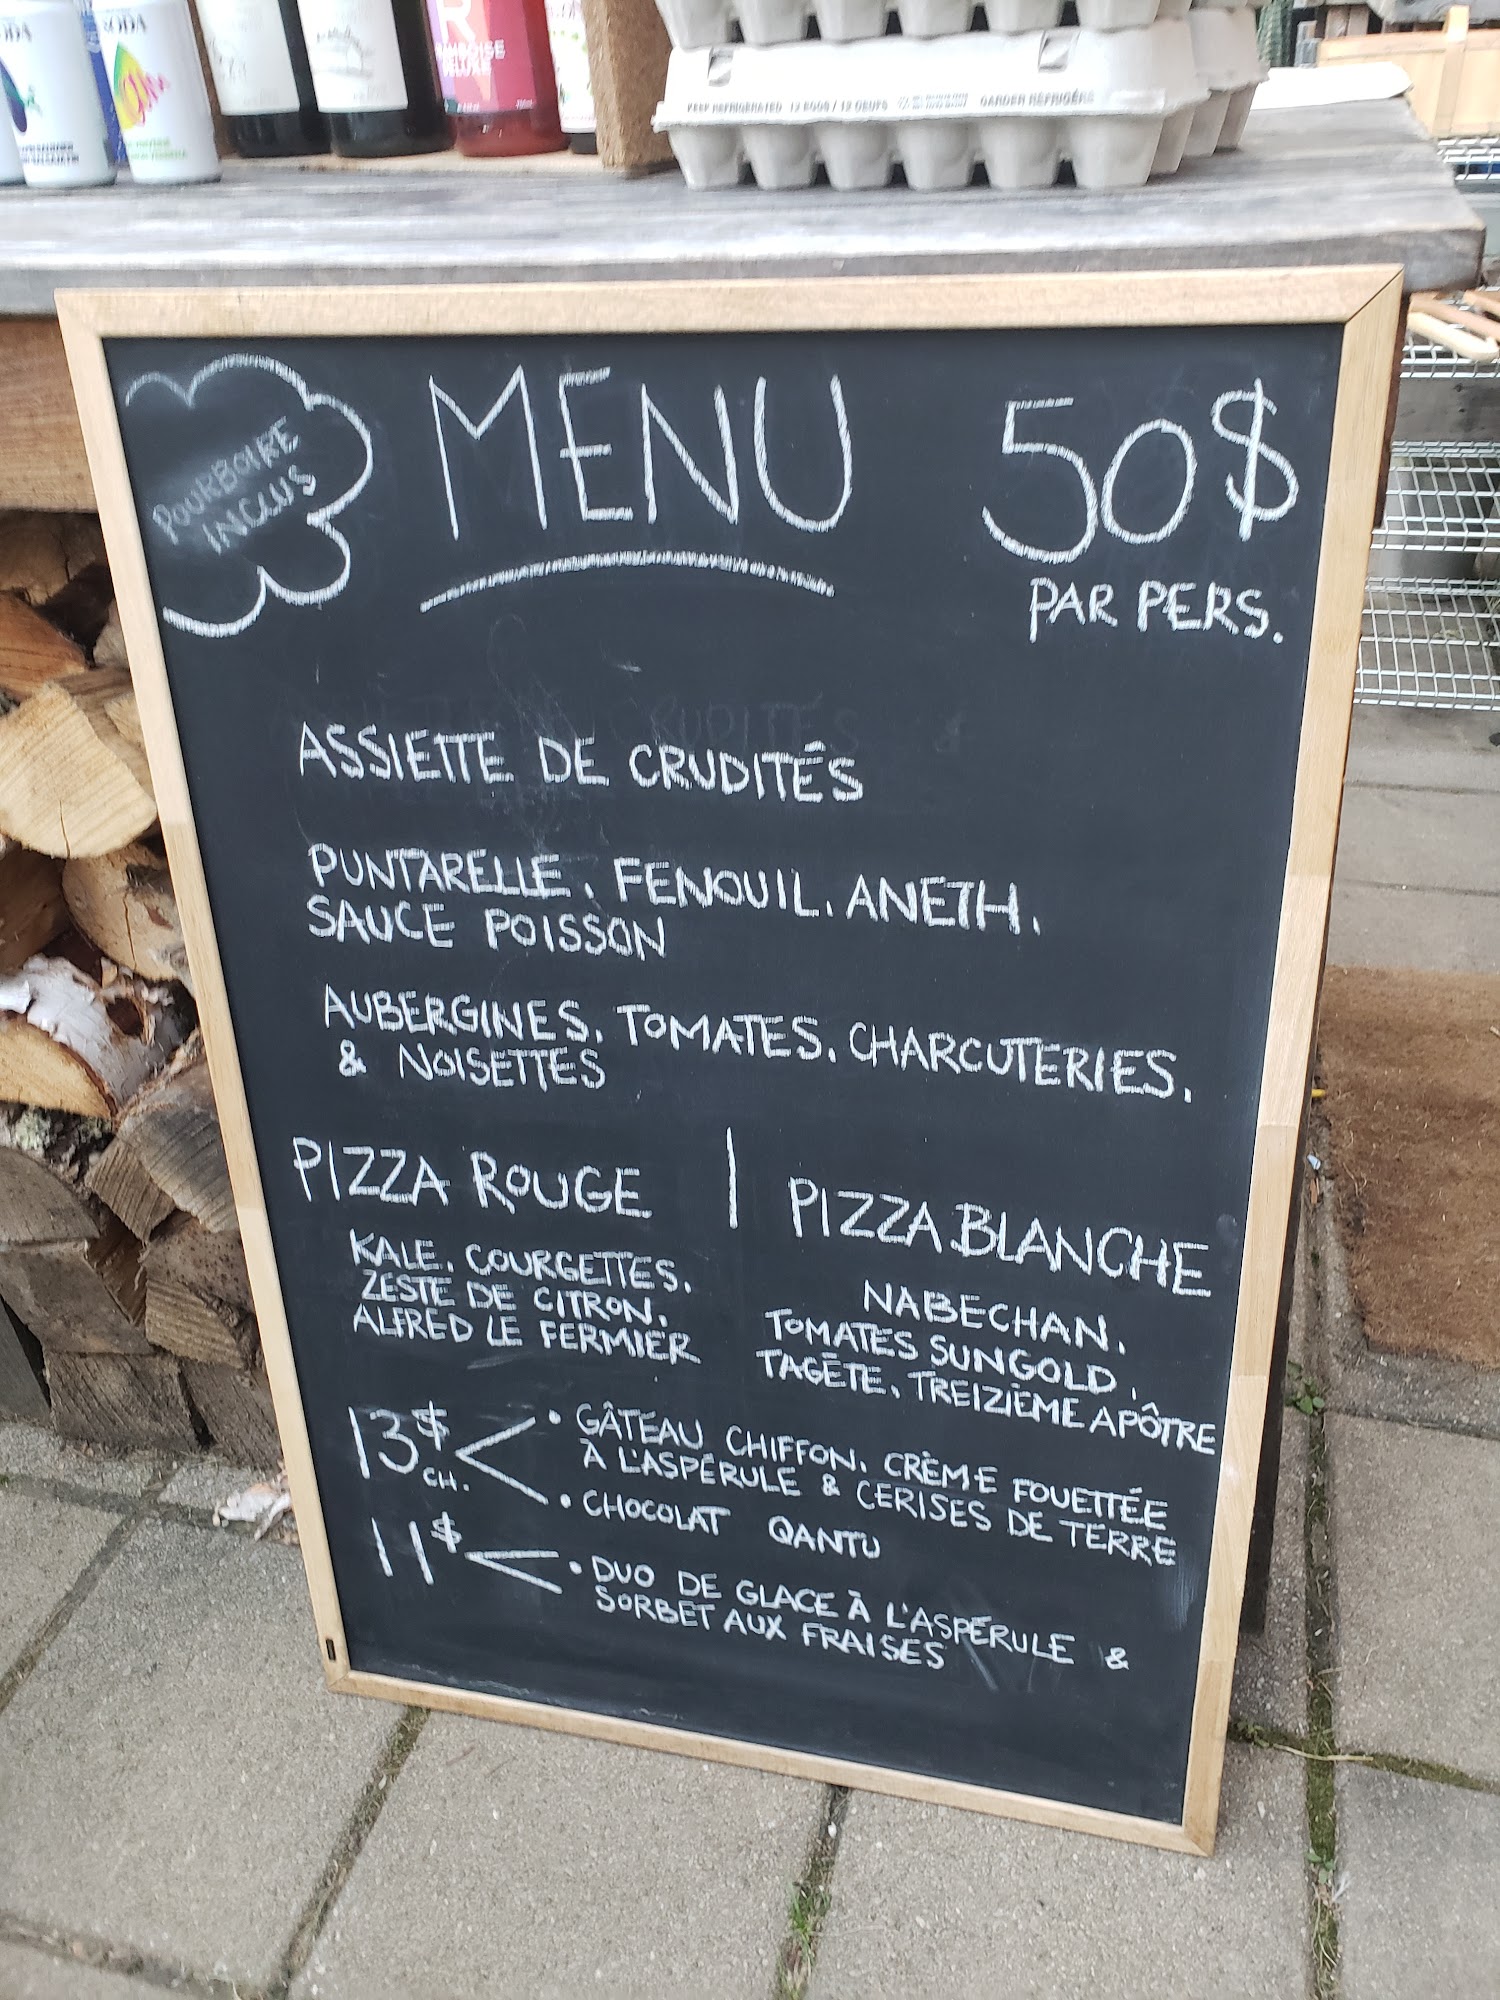 SODA
SODA
R
FRAMBOISE
DELUXE
KEEP REFRIGERATED 12 EGGS / 12 OEUFS GARDER RÉFRIGÉRÉ
POURBOIRE
INCLUS
MENU
50$
PAR PERS.
ASSIETTE DE CRUDITÉS
PUNTARELLE, FENOUIL, ANETH,
SAUCE POISSON
AUBERGINES, TOMATES, CHARCUTERIES,
& NOISETTES
PIZZA ROUGE
KALE, COURGETTES,
ZESTE DE CITRON,
ALFRED LE FERMIER
PIZZA BLANCHE
NABECHAN,
TOMATES SUNGOLD,
TAGÈTE, TREIZIÈME APÔTRE
13$
CH.
• GÂTEAU CHIFFON, CRÈME FOUETTÉE
À L'ASPÉRULE & CERISES DE TERRE
• CHOCOLAT QANTU
11$
• DUO DE GLACE À L'ASPÉRULE &
SORBET AUX FRAISES